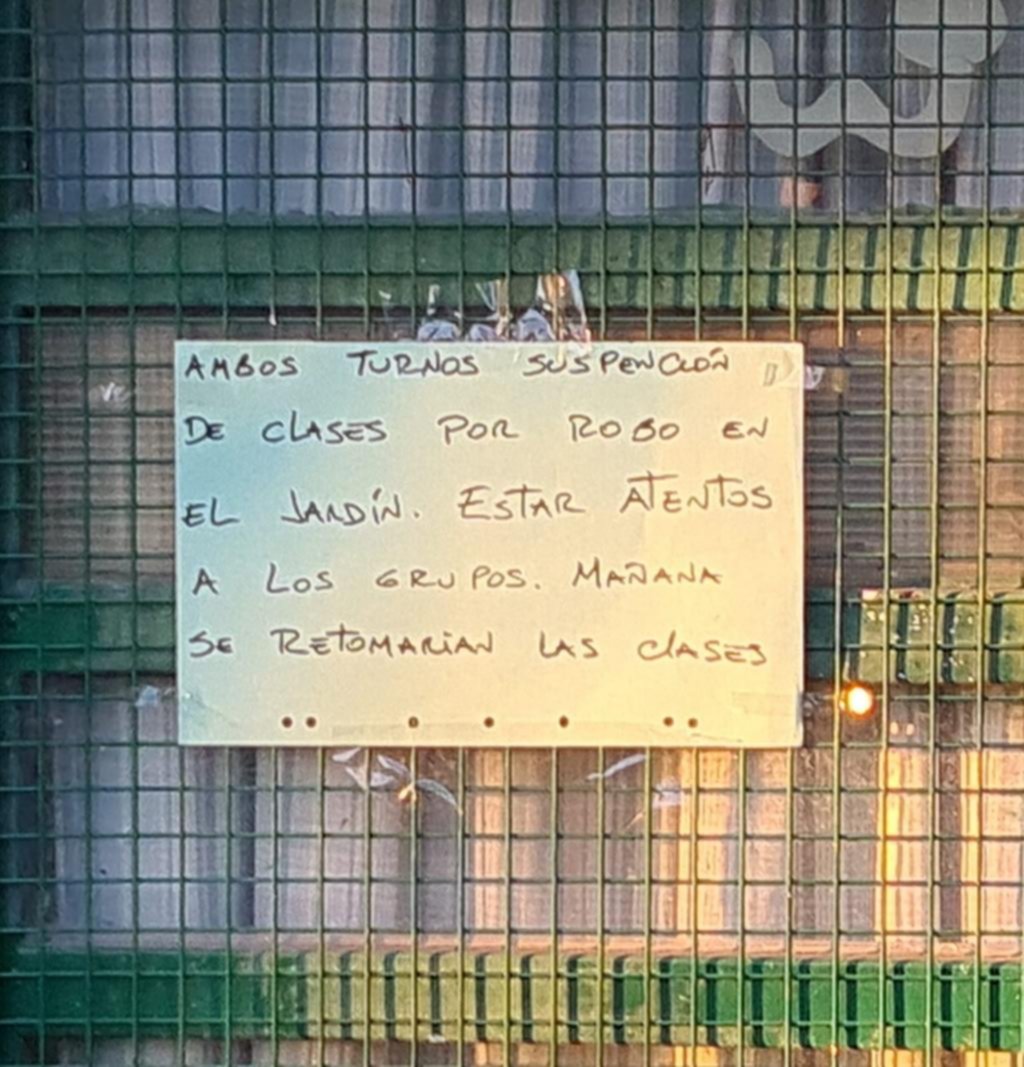 AMBOS TURNOS SUSPENCIÓN
DE CLASES POR ROBO EN
EL JARDÍN. ESTAR ATENTOS
A LOS GRUPOS. MAÑANA
SE RETOMARIAN LAS CLASES